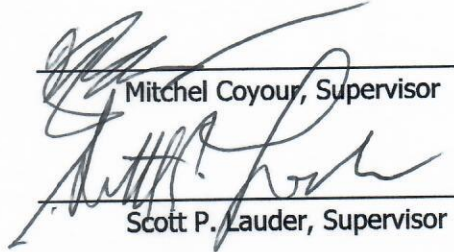 Mitchel Coyour, Supervisor
Scott P. Lauder, Supervisor